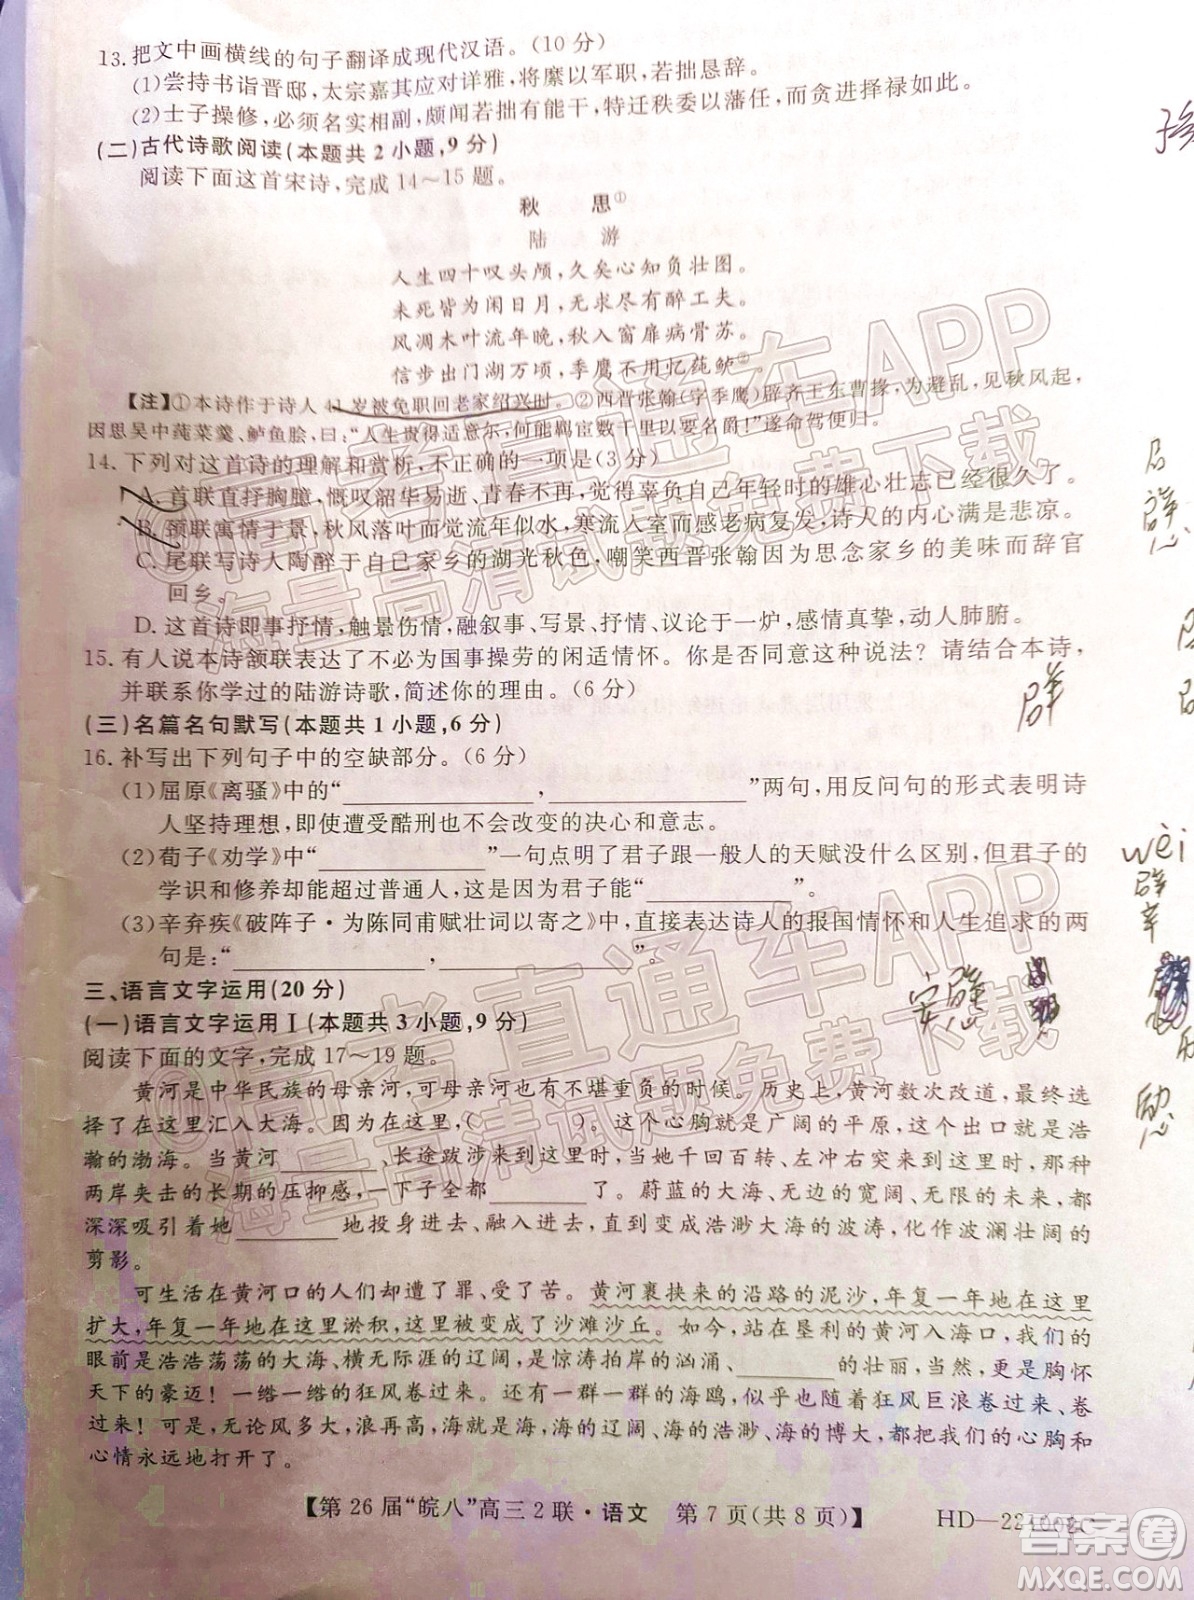 13.把文中画横线的句子翻译成现代汉语。(10分)
(1)尝持书诣晋邸,太宗嘉其应对详雅,将縻以军职,若拙恳辞。
(2)士子操修,必须名实相副,颇闻若拙有能干,特迁秩委以藩任,而贪进择禄如此。
(二)古代诗歌阅读(本题共2小题,9分)
阅读下面这首宋诗,完成14~15题。
秋 思①
陆 游
人生四十叹头颅,久矣心知负壮图。
未死皆为闲日月,无求尽有醉工夫。
风凋木叶流年晚,秋入窗扉病骨苏。
信步出门湖万顷,季鹰不用忆莼鲈②。
【注】①本诗作于诗人41岁被免职回老家绍兴时。②西晋张翰(字季鹰)辟齐王东曹掾,为避乱,见秋风起,
因思吴中莼菜羹、鲈鱼脍,曰:“人生贵得适意尔,何能羁宦数千里以要名爵!”遂命驾便归。
14.下列对这首诗的理解和赏析,不正确的一项是(3分)
A.首联直抒胸臆,慨叹韶华易逝、青春不再,诗人觉得辜负自己年轻时的雄心壮志已经很久了。
B.颈联寓情于景,秋风落叶而觉流年似水,寒流入室而感老病复发,诗人的内心满是悲凉。
C.尾联写诗人陶醉于家乡的湖光秋色,嘲笑西晋张翰因为思念家乡的美味而辞官
回乡。
D.这首诗即事抒情,触景伤情,融叙事、写景、抒情、议论于一炉,感情真挚,动人肺腑。
15.有人说本诗颔联表达了不必为国事操劳的闲适情怀。你是否同意这种说法?请结合本诗,
并联系你学过的陆游诗歌,简述你的理由。(6分)
(三)名篇名句默写(本题共1小题,6分)
16.补写出下列句子中的空缺部分。(6分)
(1)屈原《离骚》中的“____________,____________”两句,用反问句的形式表明诗
人坚持理想,即使遭受酷刑也不会改变的决心和意志。
(2)荀子《劝学》中“____________”一句点明了君子跟一般人的天赋没什么区别,但君子的
学识和修养却能超过普通人,这是因为君子能“____________”。
(3)辛弃疾《破阵子·为陈同甫赋壮词以寄之》中,直接表达诗人的报国情怀和人生追求的两
句是:“____________,____________”。
三、语言文字运用(20分)
(一)语言文字运用Ⅰ(本题共3小题,9分)
阅读下面的文字,完成17~19题。
黄河是中华民族的母亲河,可母亲也有不堪重负的时候。历史上,黄河数次改道,最终选
择了在这里汇入大海。在这里,( )。这个心胸就是广阔的平原,这个出口就是浩
瀚的渤海。当黄河________、长途跋涉来到这里时,当她千回百转、左冲右突来到这里时,
两岸夹击的长期的压抑感,一下子全都________了。蔚蓝的大海、无边的宽阔、无限的未来,
深深吸引着她________地投身进去、融入进去,直到变成浩渺大海的波涛,化作波澜壮阔的
剪影。
可生活在黄河口的人们却遭了罪、受了苦。黄河裹挟来的沿路的泥沙,年复一年地在这里
扩大,年复一年地在这里淤积,这里被变成了沙滩沙丘。如今,站在垦利的黄河入海口,我们的
眼前是浩浩荡荡的大海、横无际涯的辽阔,是惊涛拍岸的汹涌、________的壮丽,当然,更是胸怀
天下的豪迈!一绺一绺的狂风卷过来,还有一群一群的海鸥,似乎也随着狂风巨浪卷过来、卷
过来!可是,无论风多大,浪再高,海就是海,海的辽阔、海的浩渺、海的博大,都把我们的心胸和
心情永远地打开了。
【第26届“皖八”高三2联·语文 第7页(共8页)】 HD—22
群
wèi
答案圈
MXQE.COM
@高考直通车APP
海量高清试题免费下载
@高考直通车APP
海量高清试题免费下载